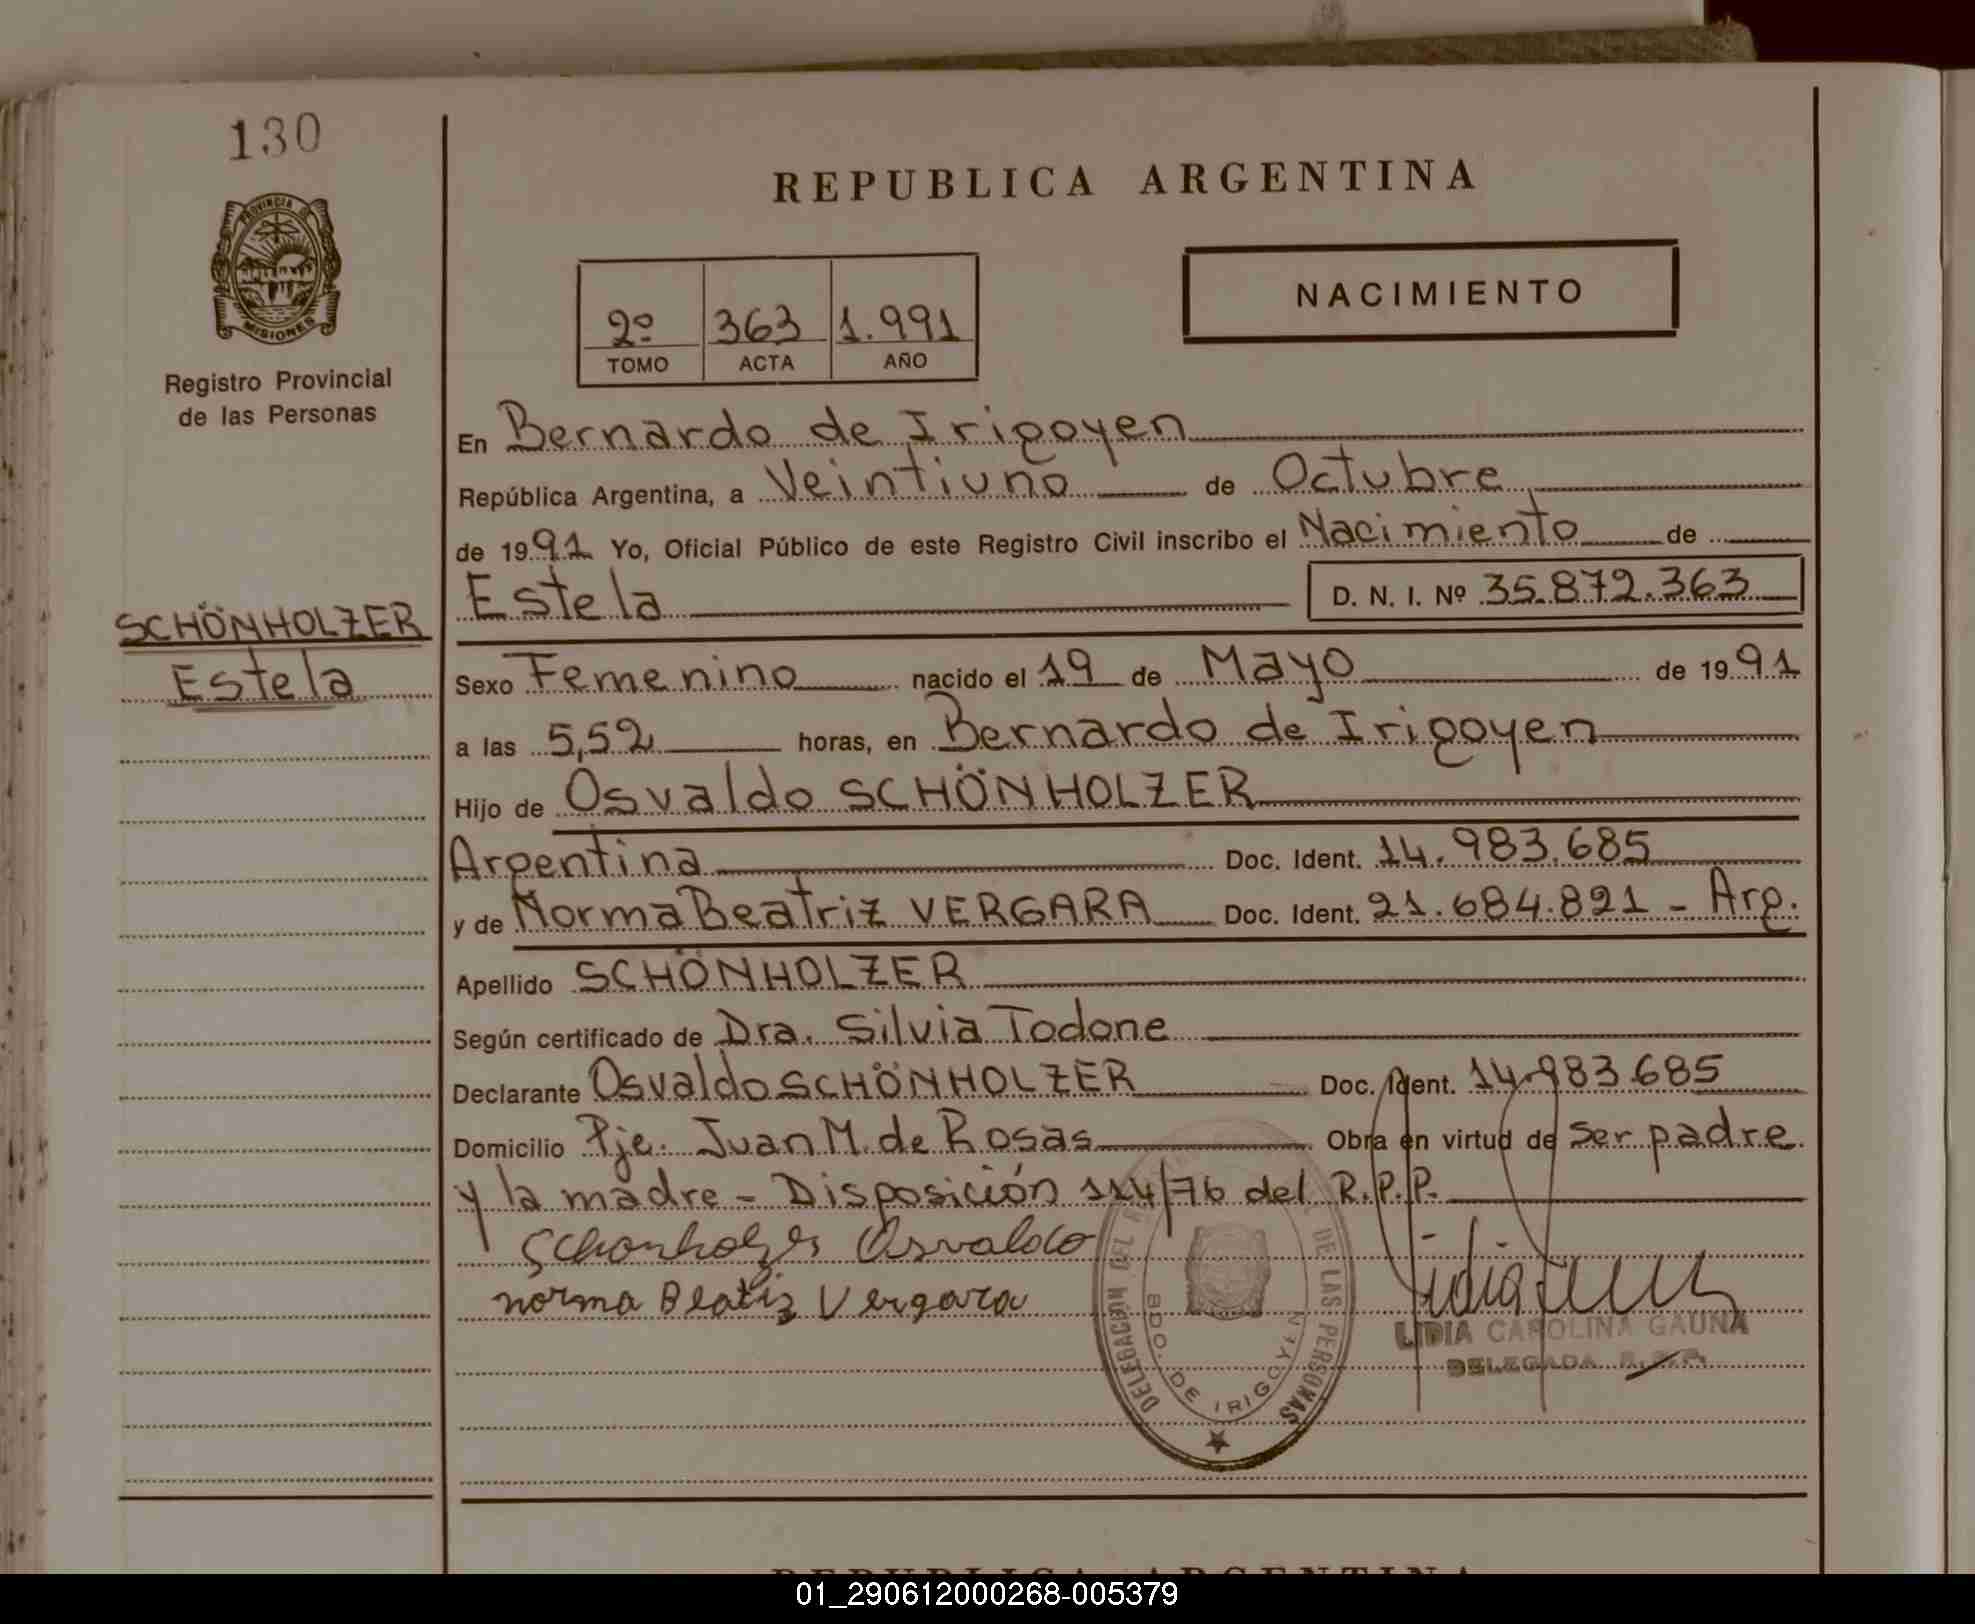 130
PROVINCIA DE
MISIONES
Registro Provincial
de las Personas
SCHÖNHOLZER
Estela
REPUBLICA ARGENTINA
2º 363 1.991
TOMO ACTA AÑO
NACIMIENTO
En Bernardo de Irigoyen
República Argentina, a Veintiuno de Octubre
de 1991 Yo, Oficial Público de este Registro Civil inscribo el Nacimiento de
Estela D. N. I. Nº 35.872.363
Sexo Femenino nacido el 19 de Mayo de 1991
a las 5,52 horas, en Bernardo de Irigoyen
Hijo de Osvaldo SCHÖNHOLZER
Argentina Doc. Ident. 14.983.685
y de Norma Beatriz VERGARA Doc. Ident. 21.684.821 - Arg.
Apellido SCHÖNHOLZER
Según certificado de Dra. Silvia Todone
Declarante Osvaldo SCHÖNHOLZER Doc. Ident. 14.983.685
Domicilio Pje. Juan M. de Rosas Obra en virtud de ser padre
y la madre - Disposición 114/76 del R.P.P.
Schonholzer Osvaldo
norma Beatriz Vergara
DELEGACIÓN DEL DE LAS PERSONAS
BDO. DE IRIGOYEN
LIDIA CAROLINA GAUNA
DELEGADA R.P.P.
REPUBLICA ARGENTINA
01_290612000268-005379